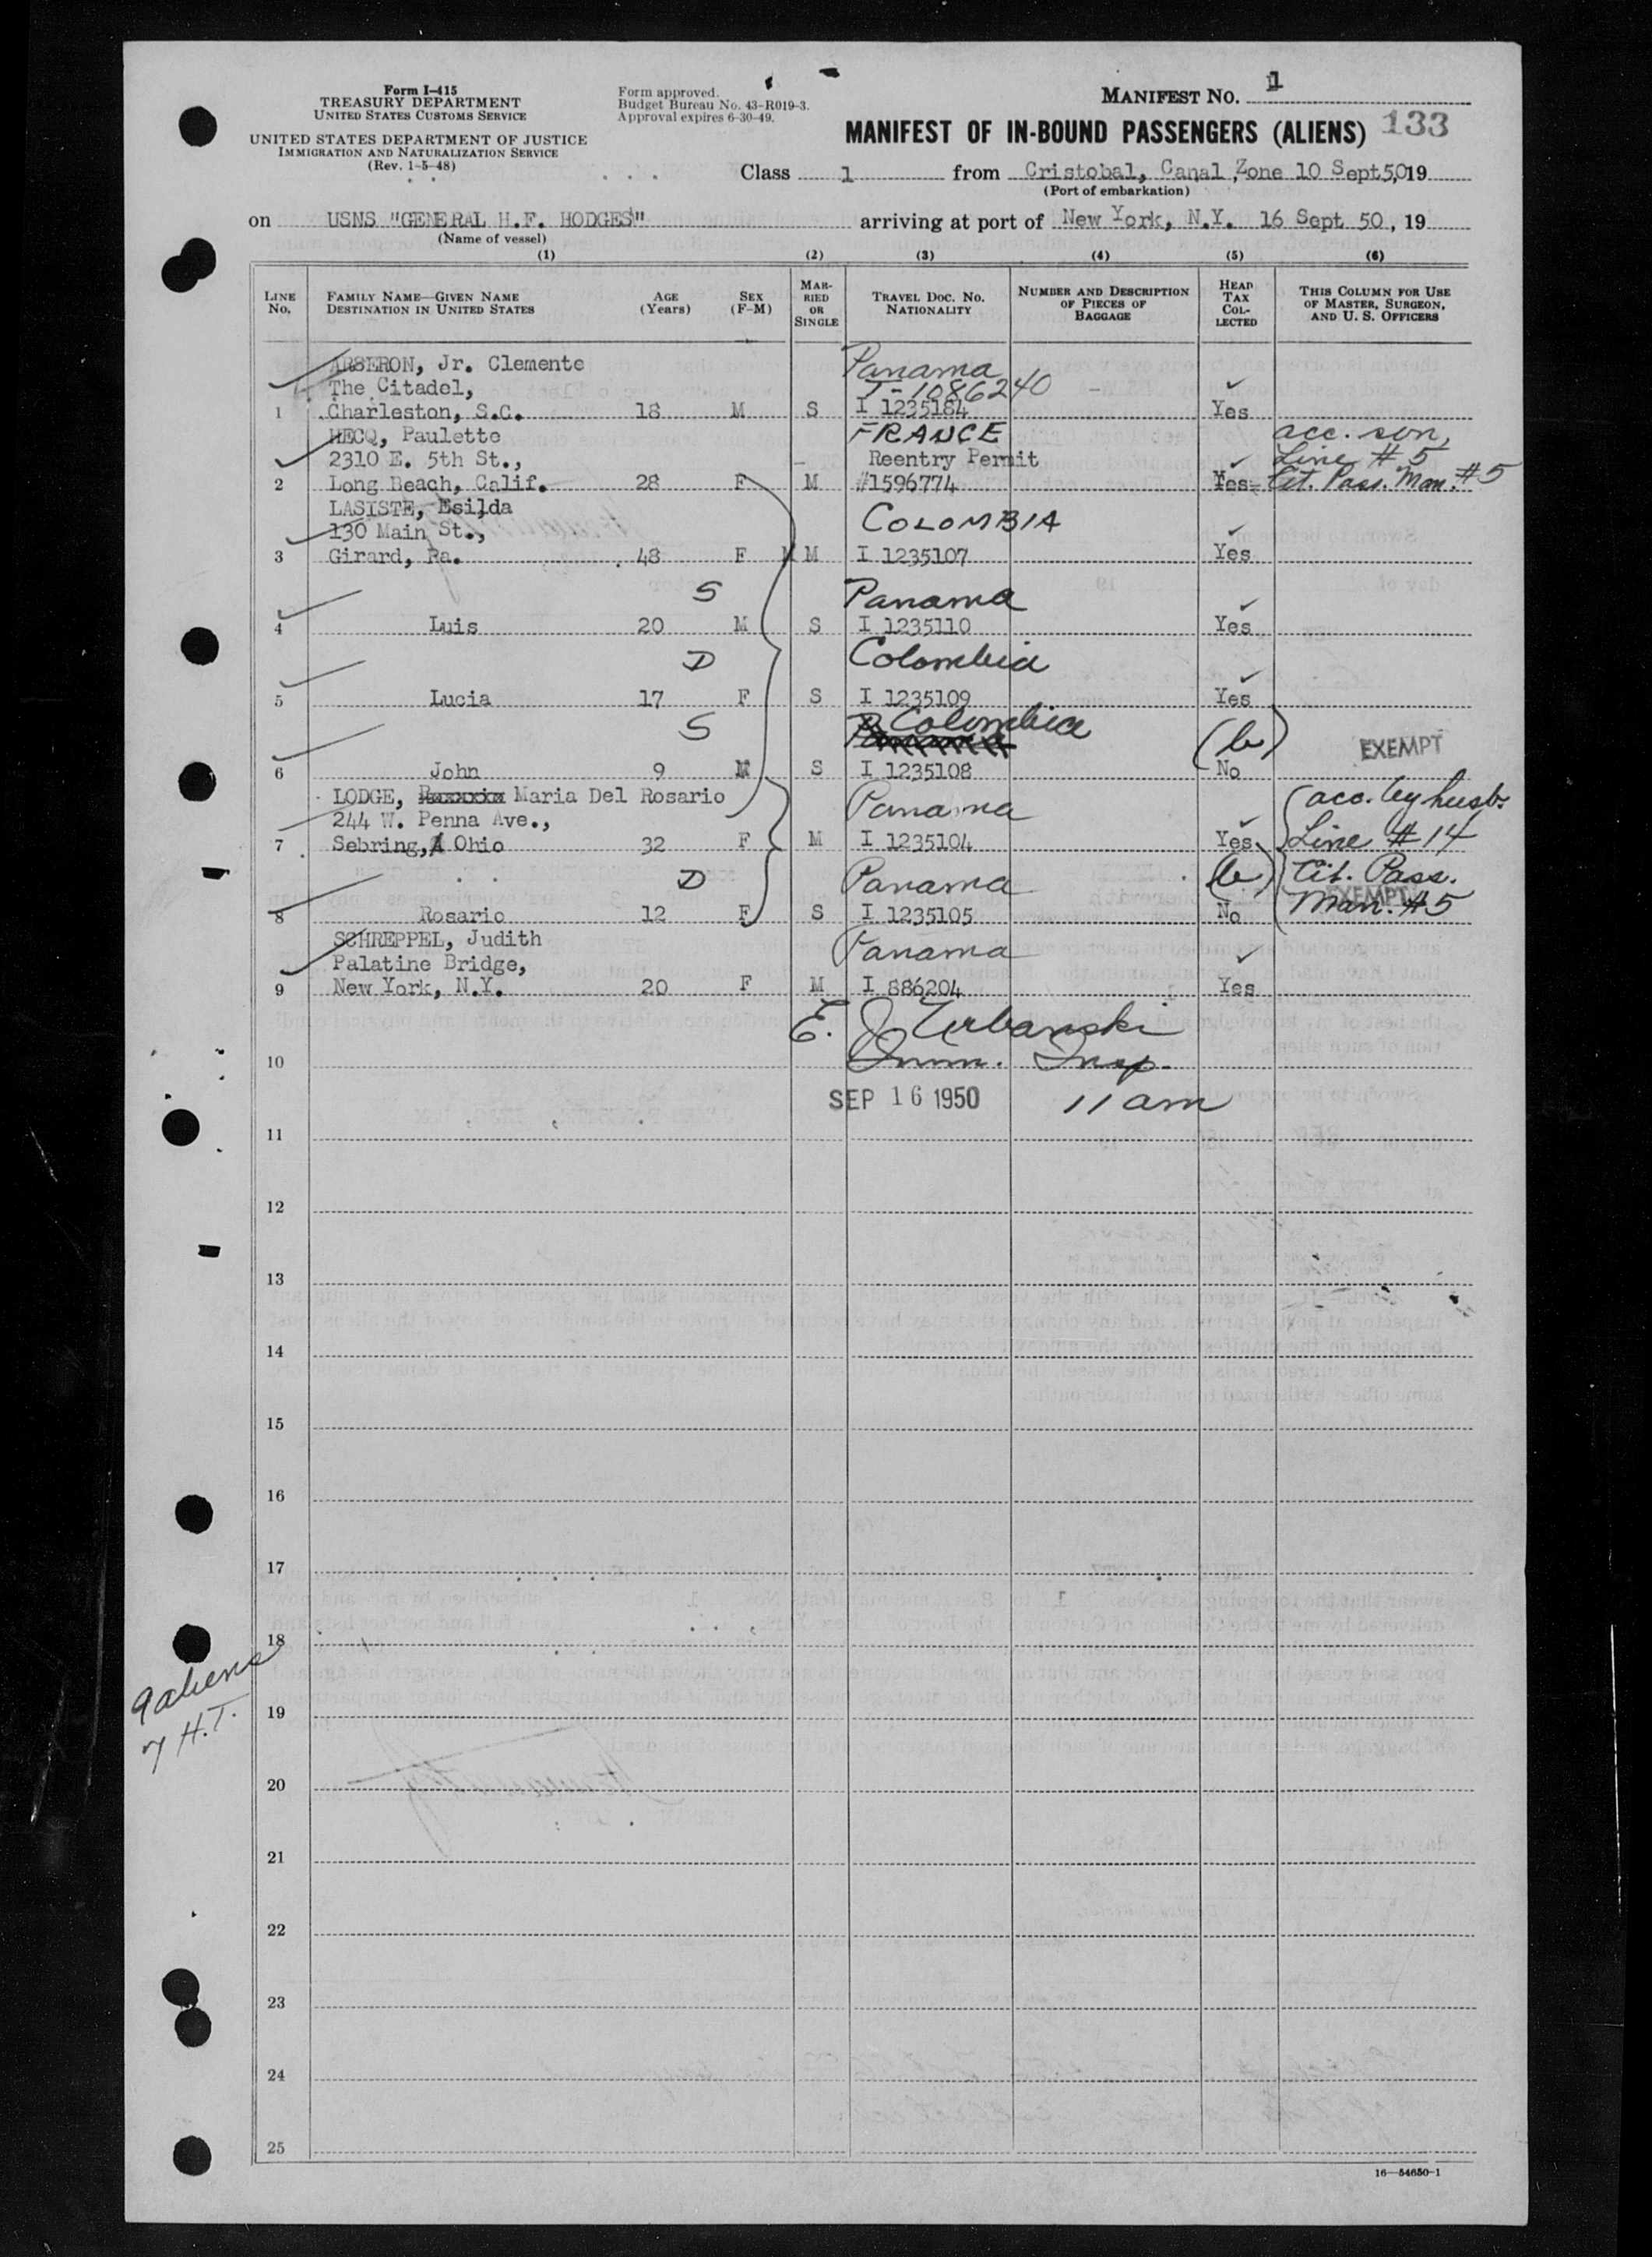 Form I-415
TREASURY DEPARTMENT
UNITED STATES CUSTOMS SERVICE
UNITED STATES DEPARTMENT OF JUSTICE
IMMIGRATION AND NATURALIZATION SERVICE
(Rev. 1-5-48)
Form approved.
Budget Bureau No. 43-R019-3.
Approval expires 6-30-49.
MANIFEST NO. 1
MANIFEST OF IN-BOUND PASSENGERS (ALIENS) 133
Class 1 from Cristobal, Canal Zone 10 Sept 50, 19
(Port of embarkation)
on USNS "GENERAL H.F. HODGES" arriving at port of New York, N.Y. 16 Sept 50, 19
(Name of vessel)
(1) (2) (3) (4) (5) (6)
LINE NO. FAMILY NAME—GIVEN NAME DESTINATION IN UNITED STATES AGE (Years) SEX (F-M) MARRIED OR SINGLE TRAVEL DOC. NO. NATIONALITY NUMBER AND DESCRIPTION OF PIECES OF BAGGAGE HEAD TAX COLLECTED THIS COLUMN FOR USE OF MASTER, SURGEON, AND U. S. OFFICERS
ARSERON, Jr. Clemente Panama
The Citadel, T-1086240
1 Charleston, S.C. 18 M S I 1235184 Yes
HECQ, Paulette FRANCE acc. son,
2310 E. 5th St., Reentry Permit Line #5
2 Long Beach, Calif. 28 F M #1596774 Yes Cit. Pass. Man. #5
LASISTE, Esilda
130 Main St., COLOMBIA
3 Girard, Pa. 48 F M I 1235107 Yes
S Panama
4 Luis 20 M S I 1235110 Yes
D Colombia
5 Lucia 17 F S I 1235109 Yes
S Panama Colombia (b) EXEMPT
6 John 9 M S I 1235108 No
LODGE, Maria Del Rosario Panama acc. by husb.
244 W. Penna Ave.,
7 Sebring, Ohio 32 F M I 1235104 Yes Line #14
D Panama (b) Cit. Pass.
8 Rosario 12 F S I 1235105 No EXEMPT Man. #5
SCHREPPEL, Judith Panama
Palatine Bridge,
9 New York, N.Y. 20 F M I 886204 Yes
E. J. Urbanski
10 Imm. Insp.
SEP 16 1950 11 am
11
12
13
14
15
16
17
18
9 aliens
7 H.T.
19
20
21
22
23
24
25
16—54650-1